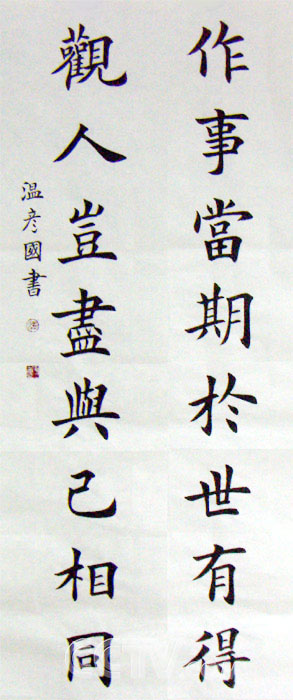 作事當期於世有得
觀人豈盡與己相同
温彦國書